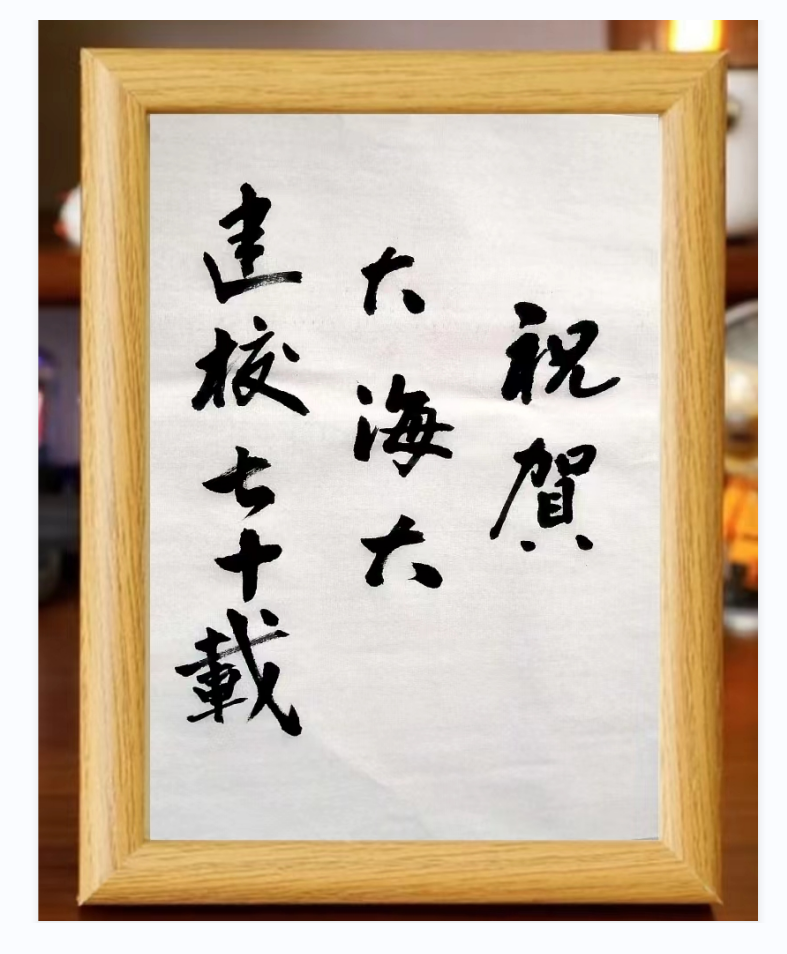 祝賀
大海大
建校七十載